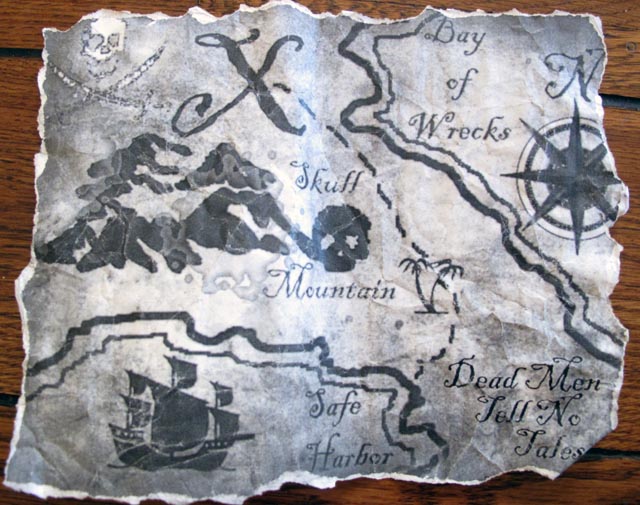 X
Bay
of
Wrecks
N
Skull
Mountain
Safe
Harbor
Dead Men
Tell No
Tales